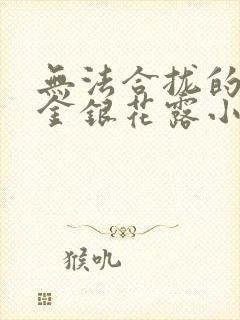 無法合拢的
金銀花露小
猴吼